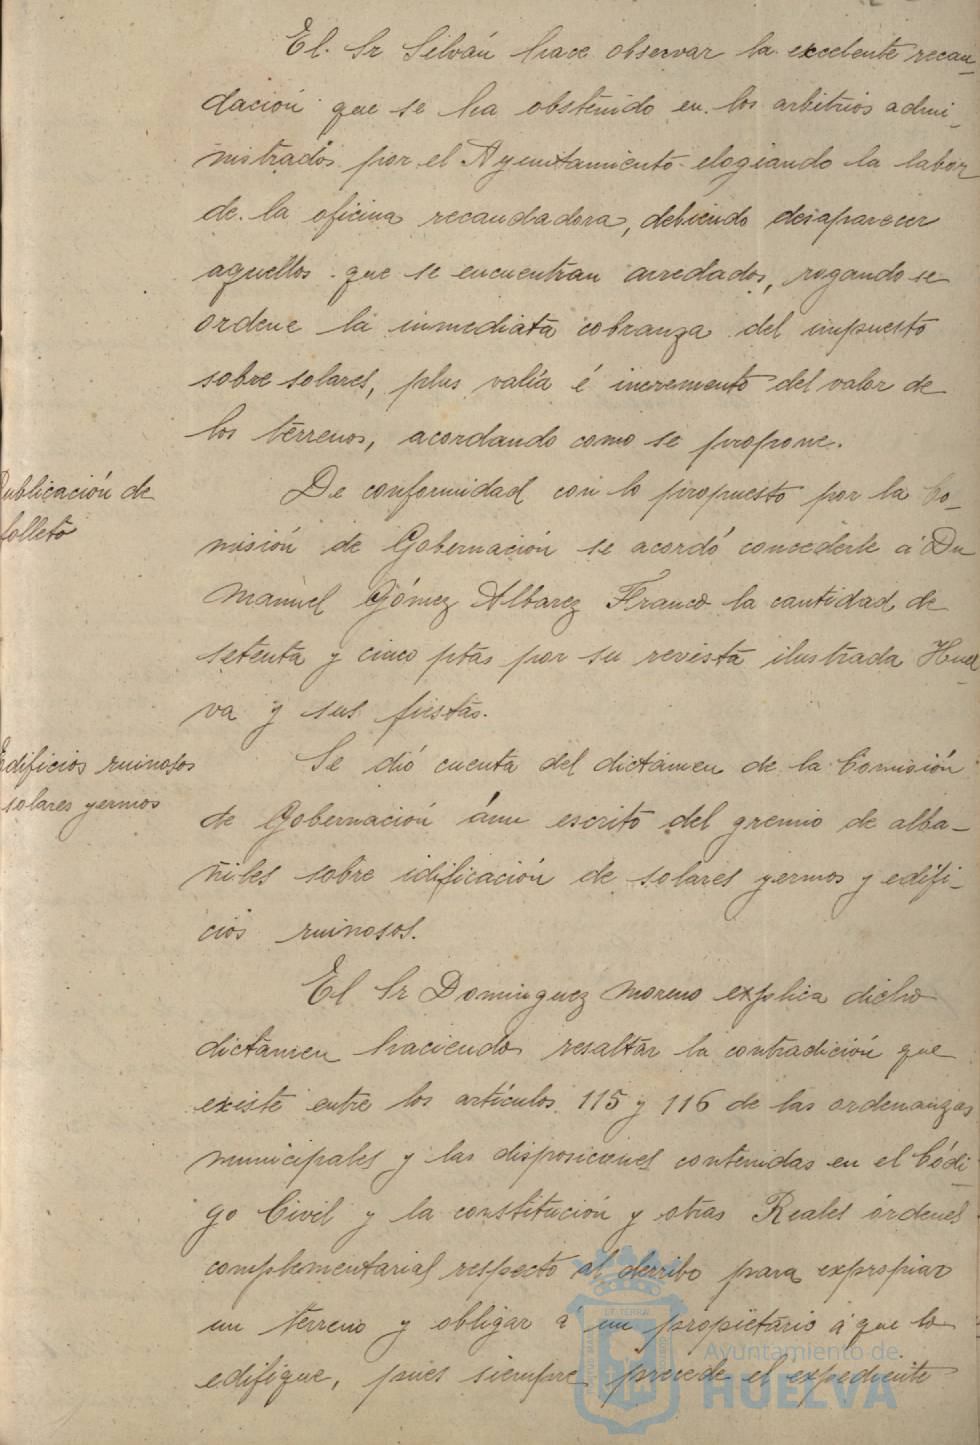 El. Sr Silván hace observar la excelente recau_
dación que se ha obstenido en los arbitrios admi_
nistrados por el Ayuntamiento elogiando la labor
de la oficina recaudadora, debiendo desaparecer
aquellos que se encuentran arredados, rogando se
ordene la inmediata cobranza del impuesto
sobre solares, plus valía é incremento del valor de
los terrenos, acordando como se propone.
Publicación de
folleto
De conformidad con lo propuesto por la Co_
misión de Gobernación se acordó concederle á Dn
Manuel Gómez Albarez Franco la cantidad de
setenta y cinco ptas por su revista ilustrada Huel_
va y sus fiestas.
Edificios ruinosos
solares yermos
Se dió cuenta del dictámen de la Comisión
de Gobernación á un escrito del gremio de alba_
ñiles sobre idificación de solares yermos y edifi_
cios ruinosos.
El Sr Dominguez Moreno explica dicho
dictámen haciendo resaltar la contradición que
existe entre los artículos 115 y 116 de las ordenanzas
municipales y las disposiciones contenidas en el Códi_
go Civil y la constitución y otras Reales órdenes
complementarias respecto al derribo para expropiar
un terreno y obligar á un propietario á que lo
edifique, pues siempre precede el expediente
Ayuntamiento de
HUELVA